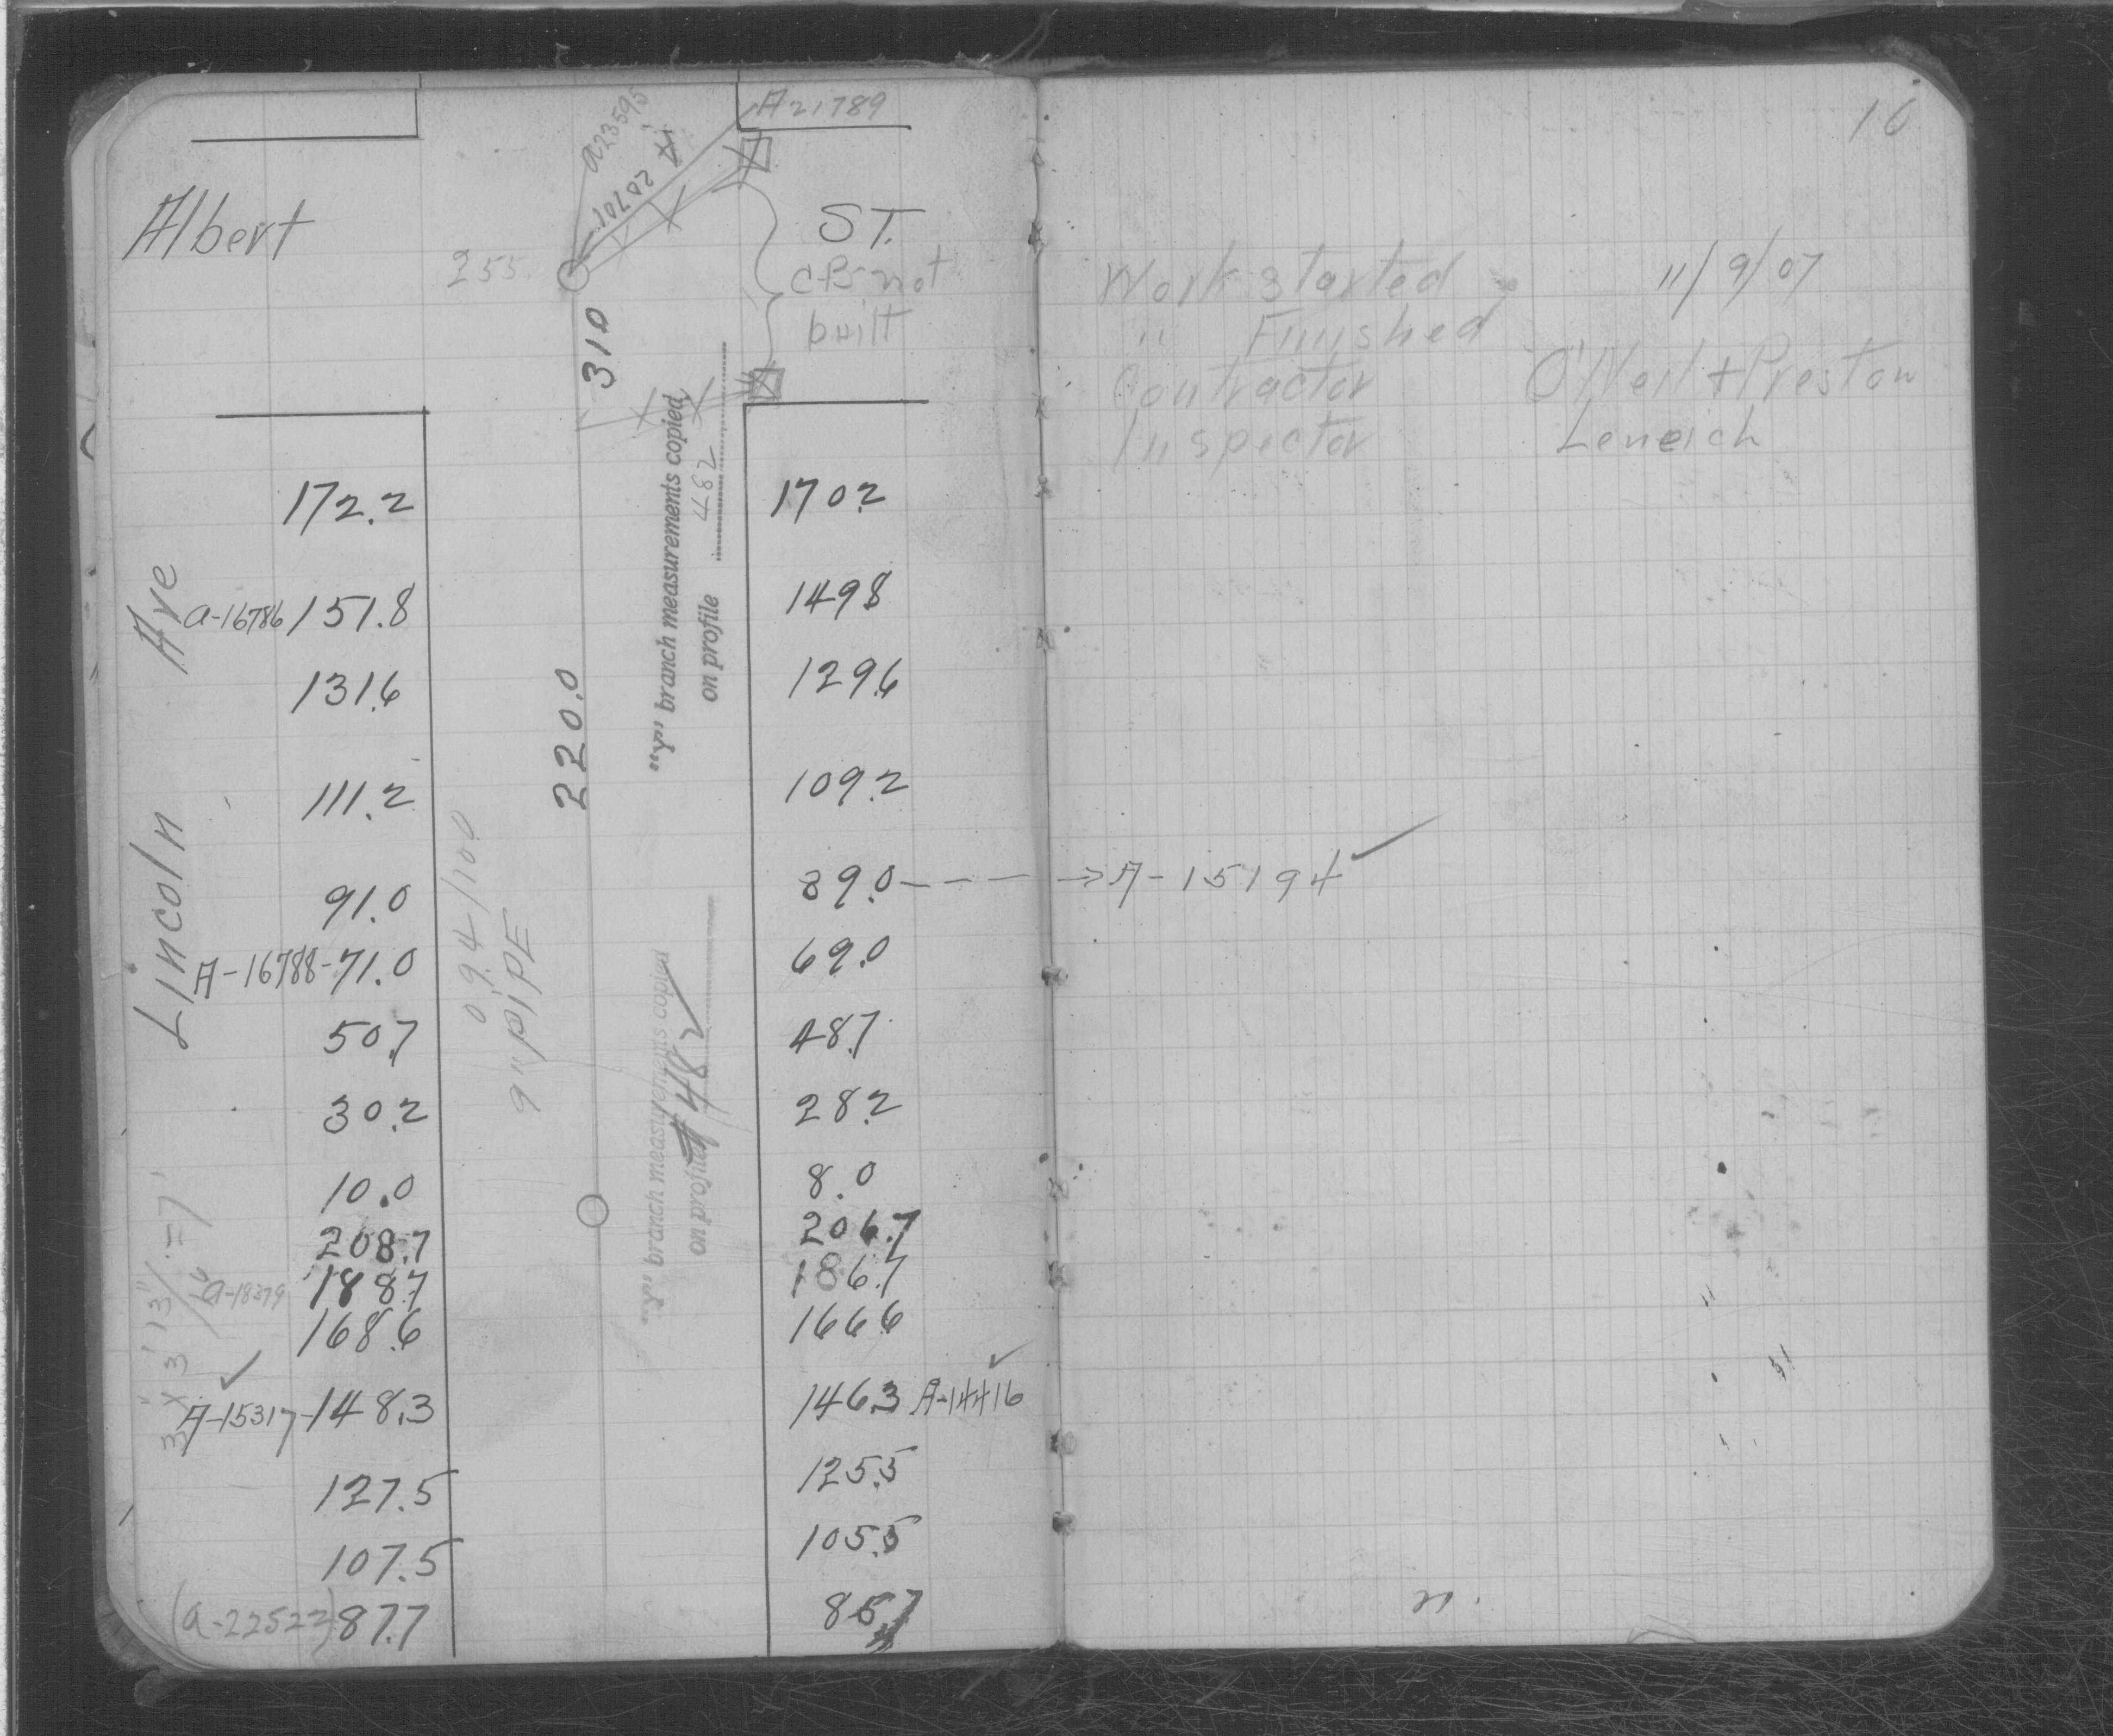 16
A21789
a23595
20707
Albert
ST.
255.
CB not
built
310
Work started 11/9/07
" Finished
Contractor O'Neil + Preston
Inspector Leneich
"Y" branch measurements copied
on profile 482
172.2 170.2
Ave
a-16786 151.8 149.8
131.6 129.6
220.0
111.2 109.2
Lincoln
91.0 89.0 - - - -> A-15194 ✓
0.94/100
9" PIPE
A-16788-71.0 69.0
50.7 48.7
30.2 28.2
"Y" branch measurements copied
on profile # 482
10.0 8.0
208.7 206.7
a-18379 188.7 186.7
168.6 166.6
A-15317-148.3 146.3 A-14416
127.5 125.5
107.5 105.5
(a-22522) 87.7 85.7